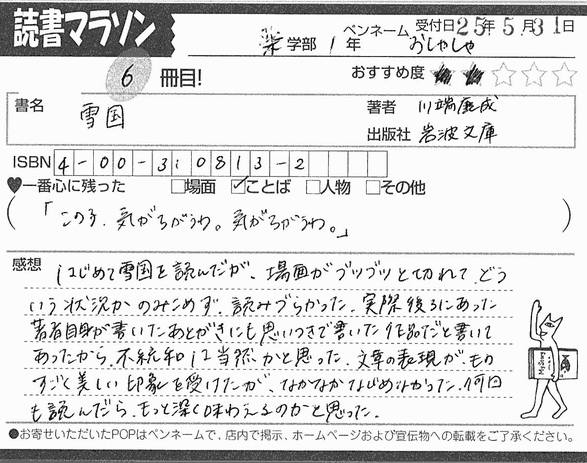 読書マラソン
受付日25年5月31日
薬学部 1年 ペンネーム おしゃしゃ
6 冊目!
おすすめ度 ★★☆☆☆
書名 雪国
著者 川端康成
出版社 岩波文庫
ISBN 4-00-310813-2
♥一番心に残った □場面 ☑ことば □人物 □その他
(「この子、気がちがうわ。気がちがうわ。」)
感想 はじめて雪国を読んだが、場面がブツブツと切れて、どう
いう状況かのみこめず、読みづらかった。実際後ろにあった
著者自身が書いたあとがきにも思いつきで書いた作品だと書いて
あったから、不統和は当然かと思った。文章の表現が、ものすごく美しい印象を受けたが、なかなかなじめなかった。何回
も読んだら、もっと深く味わえるのかと思った。
●お寄せいただいたPOPはペンネームで、店内で掲示、ホームページおよび宣伝物への転載をご了承ください。